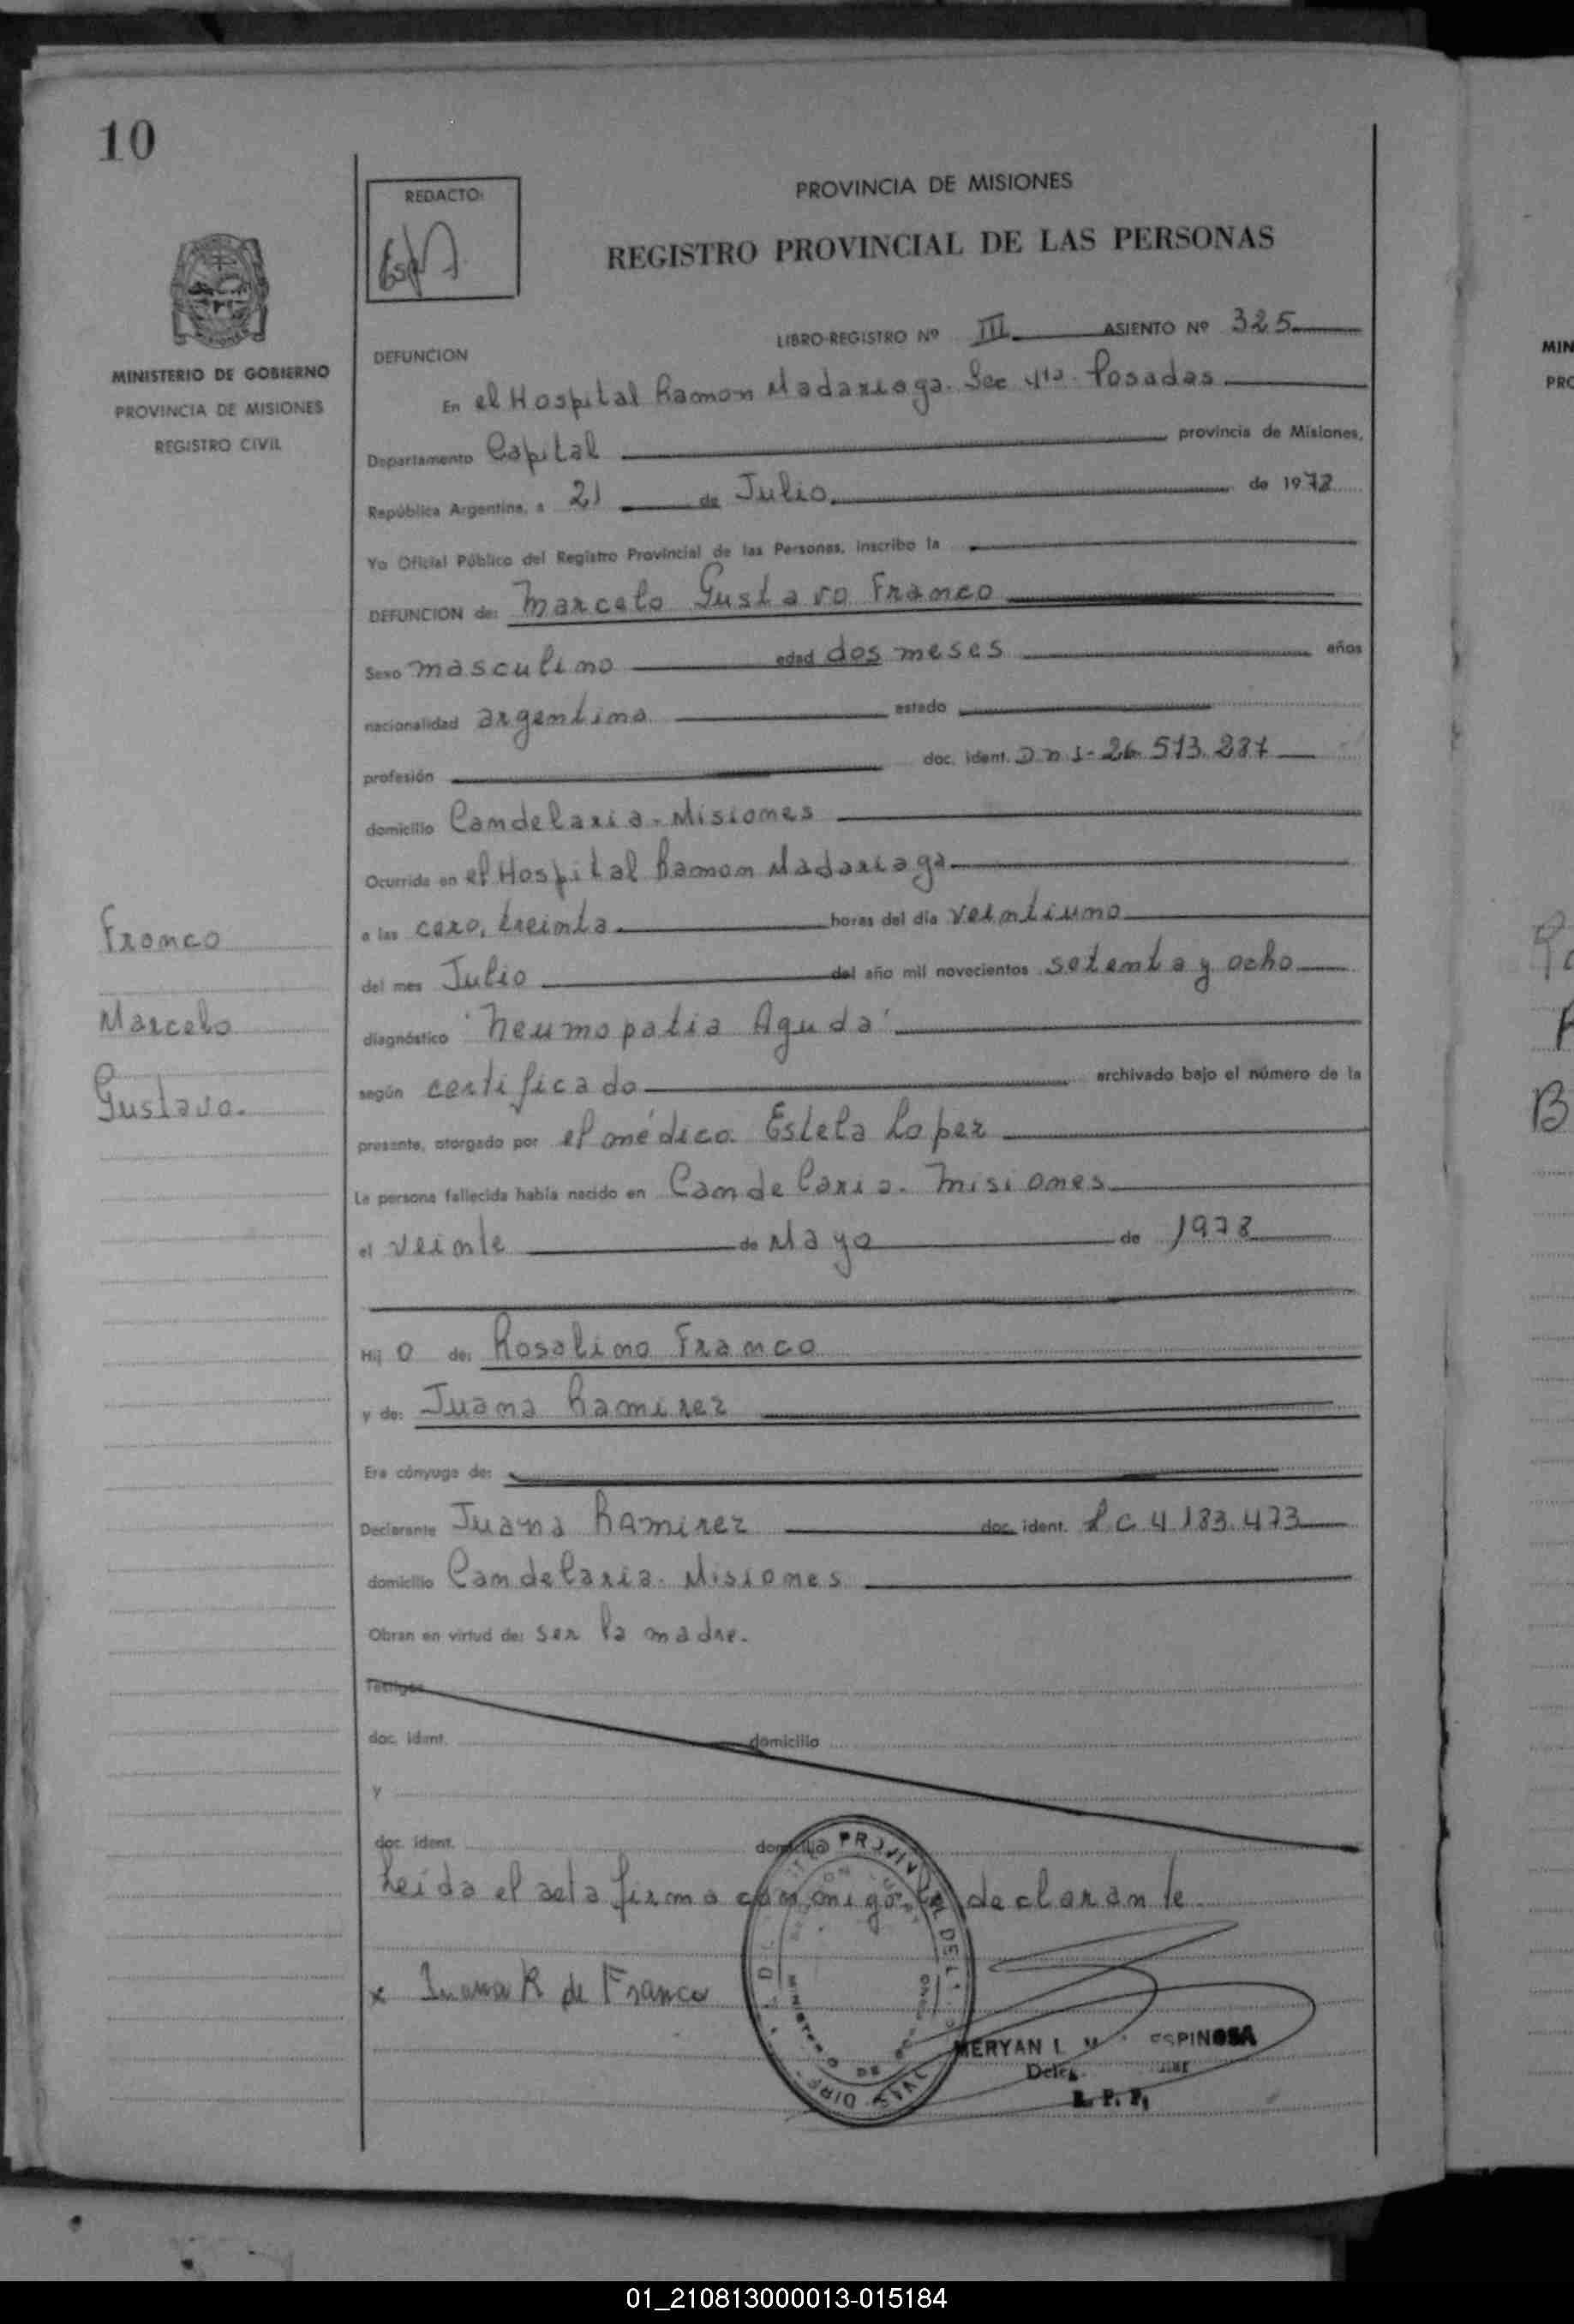 10
REDACTO:
PROVINCIA DE MISIONES
REGISTRO PROVINCIAL DE LAS PERSONAS
MINISTERIO DE GOBIERNO
PROVINCIA DE MISIONES
REGISTRO CIVIL
LIBRO-REGISTRO Nº III ASIENTO Nº 325
DEFUNCION
En el Hospital Ramon Madariaga. Sec 4ta. Posadas
Departamento Capital provincia de Misiones,
República Argentina, a 21 de Julio de 1978
Yo Oficial Público del Registro Provincial de las Personas, inscribo la
DEFUNCION de: Marcelo Gustavo Franco
Sexo masculino edad dos meses años
nacionalidad argentina estado
profesión doc. ident. DNI-26.513.287
domicilio Candelaria-Misiones
Ocurrida en el Hospital Ramon Madariaga
a las cero, treinta horas del día veintiuno
del mes Julio del año mil novecientos setenta y ocho
diagnóstico "Neumopatia Aguda"
según certificado archivado bajo el número de la
presente, otorgado por el médico Estela Lopez
La persona fallecida había nacido en Candelaria. Misiones
el veinte de Mayo de 1978
Hij o de: Rosalino Franco
y de: Juana Ramirez
Era cónyuge de:
Declarante Juana Ramirez doc. ident. LC 4.183.473
domicilio Candelaria. Misiones
Obran en virtud de: ser la madre.
Testigos
doc. ident. domicilio
y
doc. ident. domicilio
Leida el acta firma conmigo la declarante
x Juana R de Franco
MERYAN I. ESPINOSA
R. P. P.
Franco
Marcelo
Gustavo.
MIN
PRO
B
01_210813000013-015184